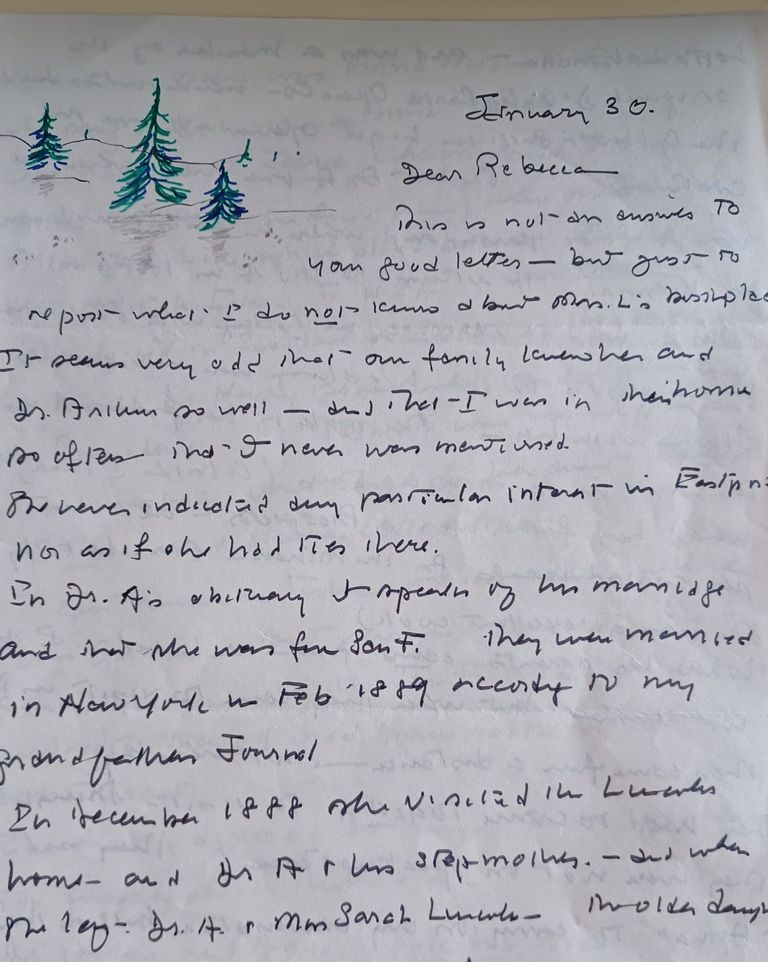 January 30.
Dear Rebecca
This is not an answer to
your good letter — but just to
report what I do not know about Mrs. L's
It seems very odd that our family knew her and
Dr. Arthur so well — and that I was in their home
so often that it never was mentioned.
She never indicated any particular interest in
nor as if she had ties there.
In Dr. A's obituary it speaks of his marriage
and that she was from San F. They were married
in New York in Feb 1889 according to my
grandfathers Journal
In December 1888 she visited the Lincoln
home — and Dr A + his stepmother. — and when
she left — Dr. A. + Miss Sarah Lincoln — the older